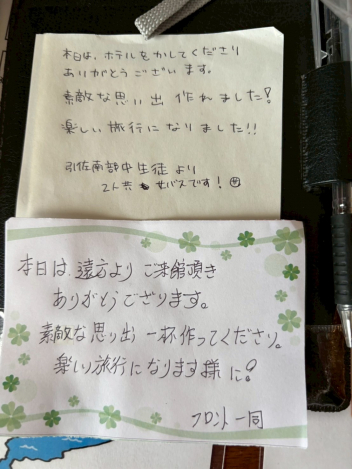 本日は、ホテルをかしてくださり
ありがとうございます。
素敵な思い出 作れました!
楽しい旅行になりました!!
引佐南部中生徒より
2人共 女バスです!
本日は、遠方より ご来館頂き
ありがとうござります。
素敵な思り出 一杯作ってくださり。
楽しい旅行になります様に!
フロント一同